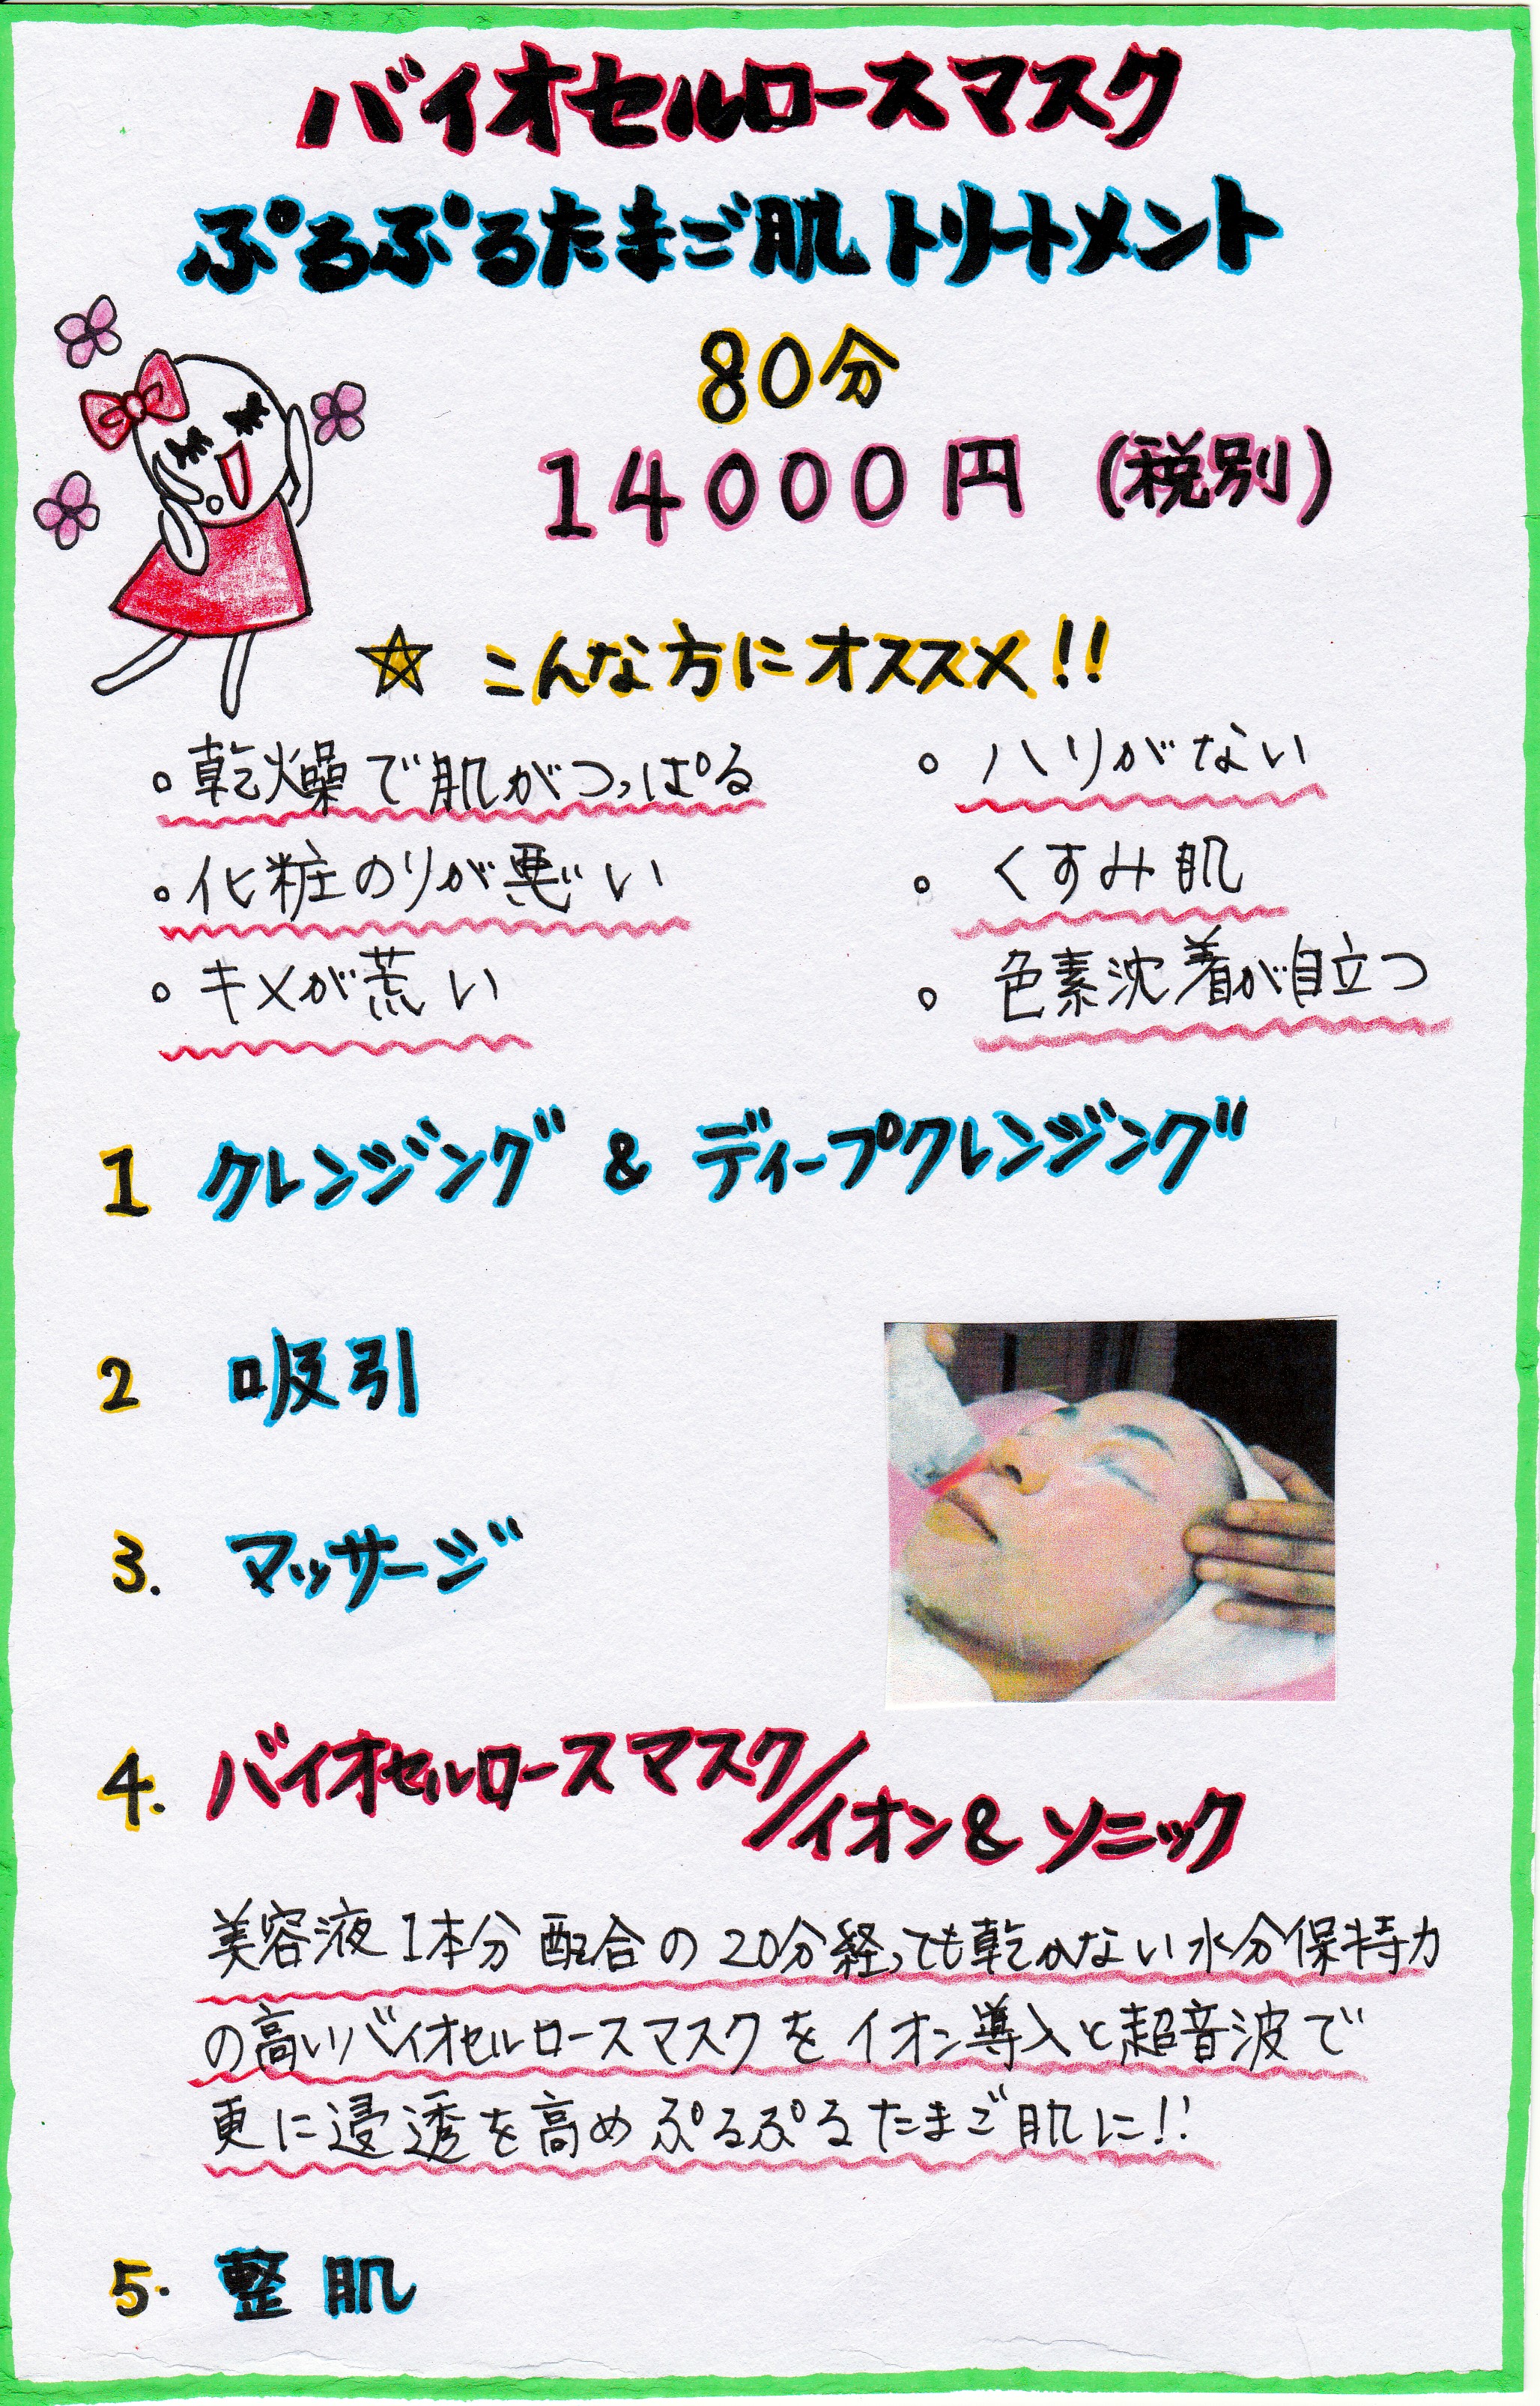 バイオセルロースマスク
ぷるぷるたまご肌トリートメント
80分
14000円 (税別)
☆ こんな方にオススメ!!
。乾燥で肌がつっぱる
。ハリがない
。化粧のりが悪い
。くすみ肌
。キメが荒い
。色素沈着が目立つ
1 クレンジング & ディープクレンジング
2 吸引
3. マッサージ
4. バイオセルロースマスク/イオン&ソニック
美容液1本分配合の20分経っても乾かない水分保持力
の高いバイオセルロースマスクをイオン導入と超音波で
更に浸透を高めぷるぷるたまご肌に!!
5. 整肌